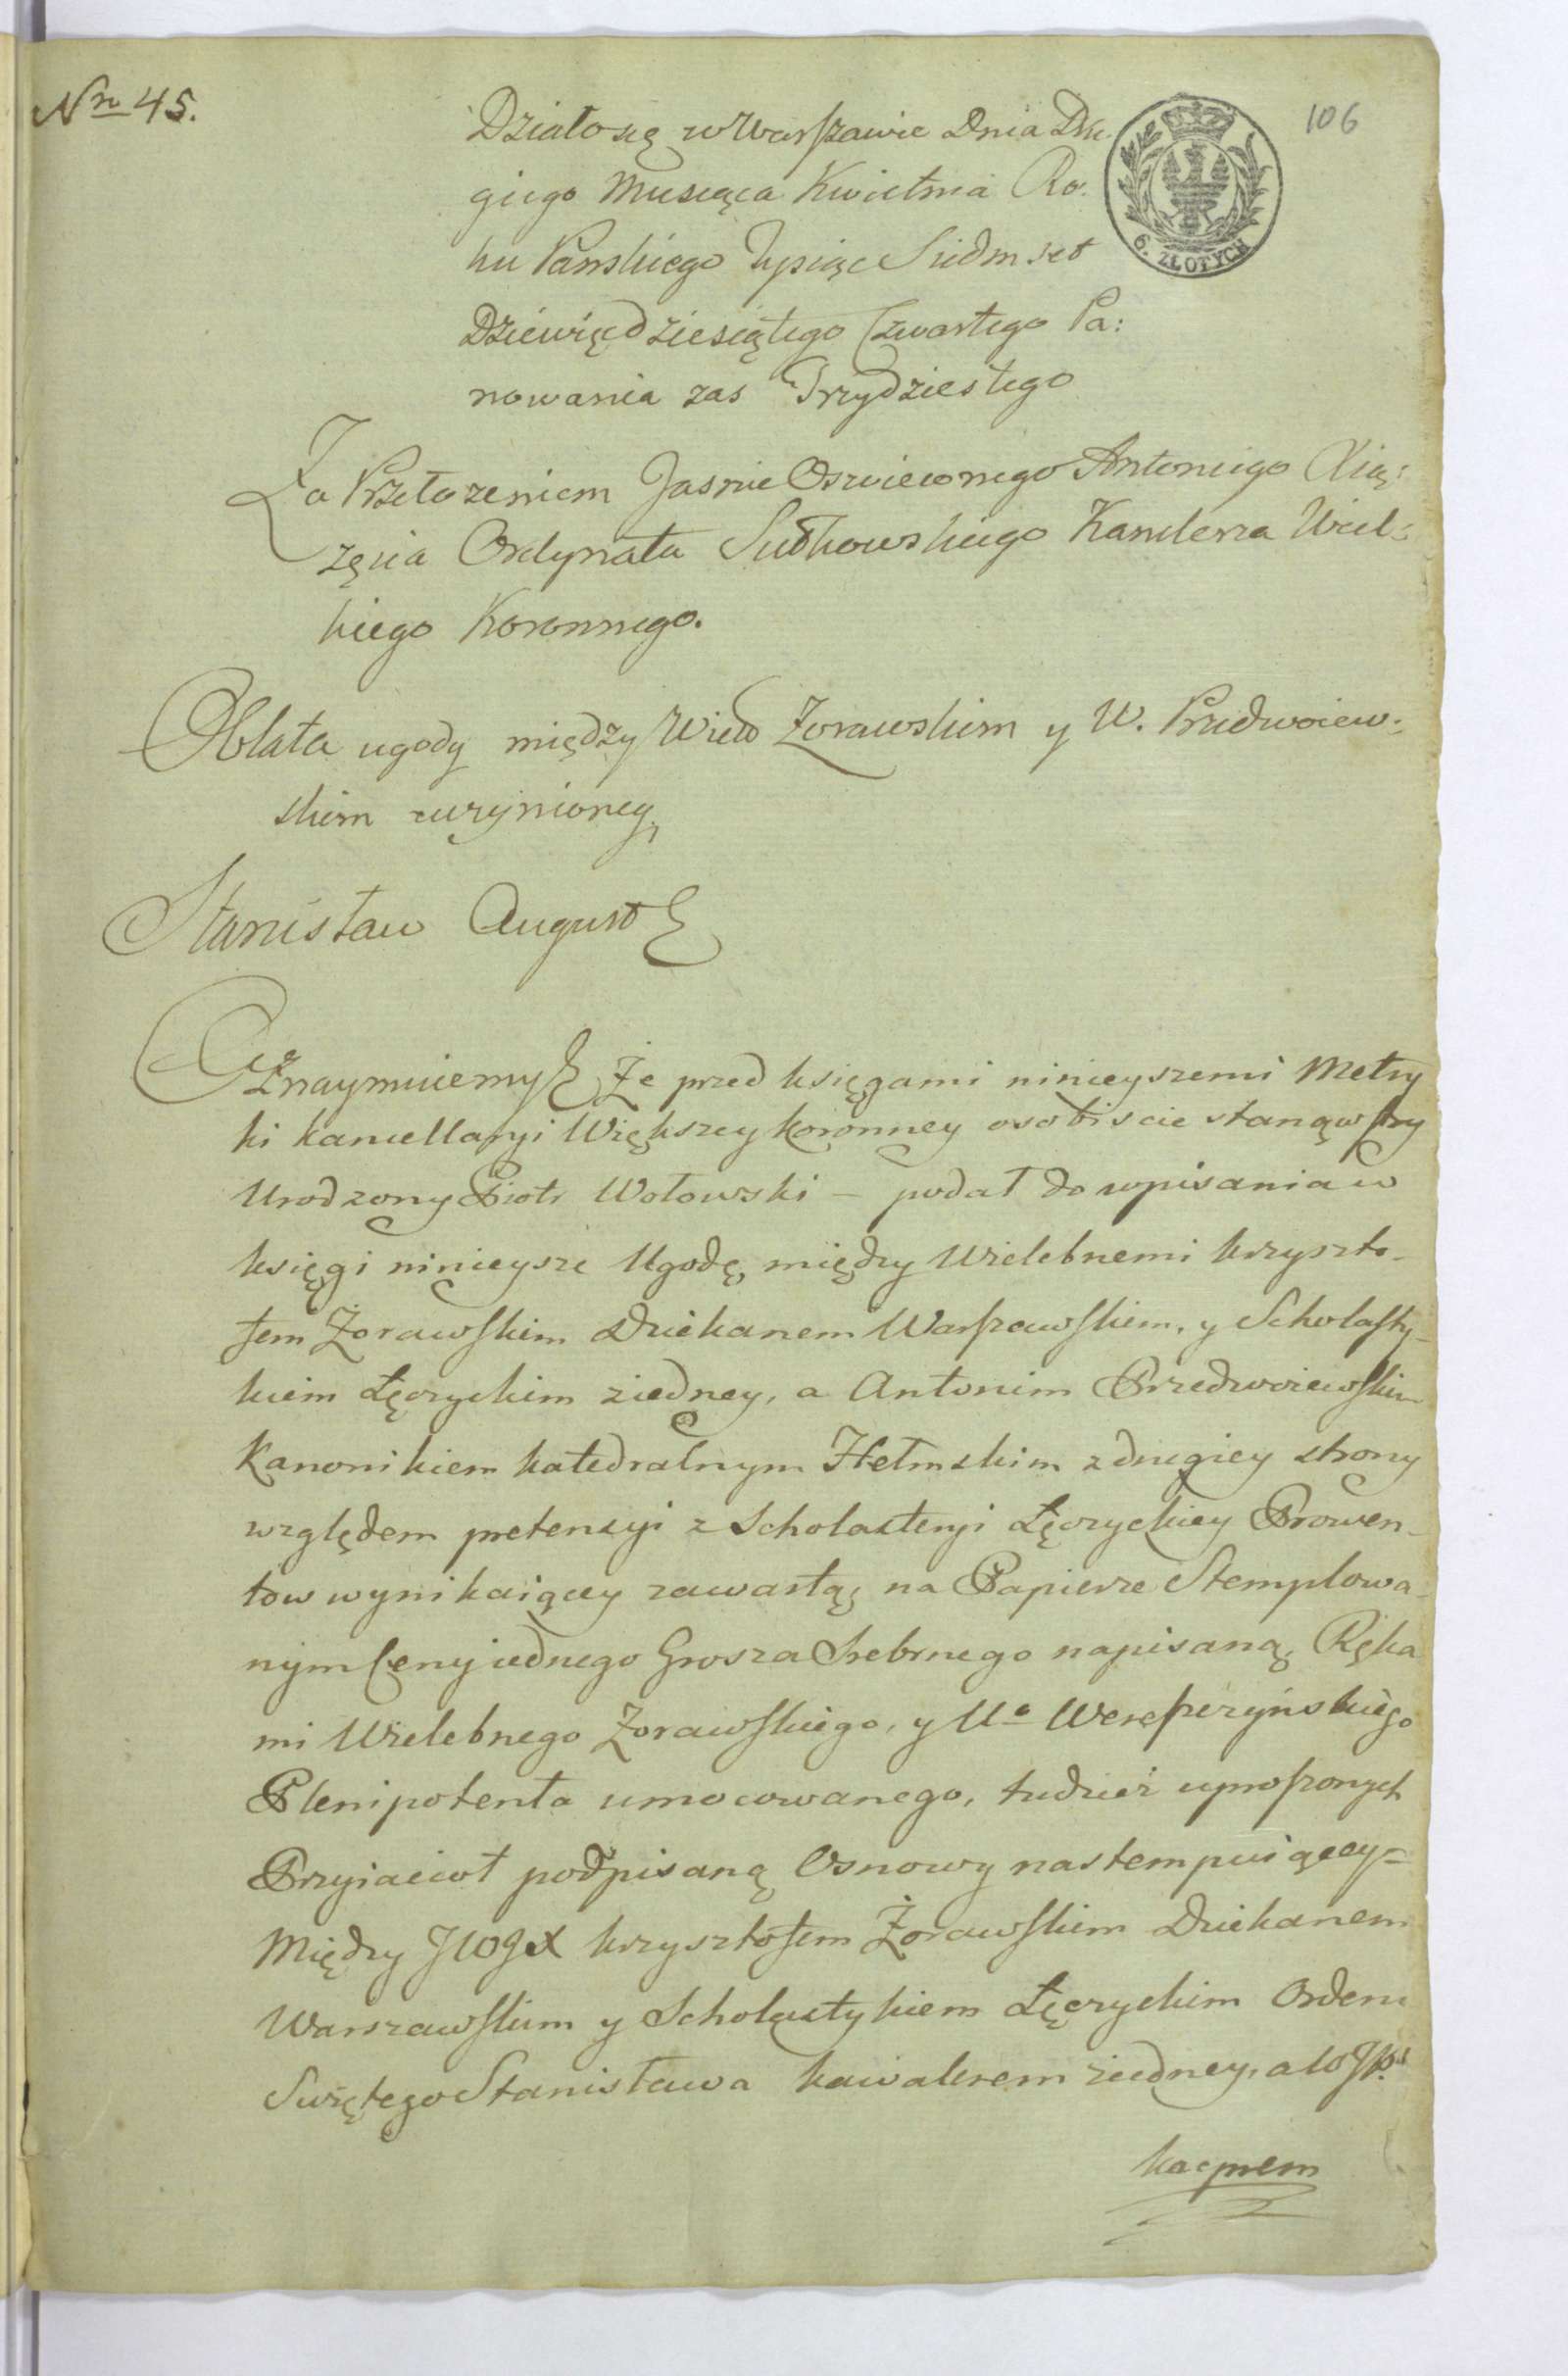 Nro 45.
106
Działo się w Warszawie Dnia Dru-
giego Miesiąca Kwietnia Ro-
ku Pańskiego Tysiąc Siedmset
Dziewięcdziesiątego Czwartego Pa:
nowania zas Trzydziestego
6. ZŁOTYCH
Za Przełożeniem Jasnie Oswieconego Antoniego Xią:
żęcia Ordynata Sułkowskiego Kanclerza Wiel:
kiego Koronnego.
Oblata ugody między Wiel Żorawskim y W. Przedwoiew:
skim uczynioney
Stanisław August
Oznaymuiemy Że przed księgami ninieyszemi Metry
ki kancellaryi Większey koronney osobiscie stanąwszy
Urodzony Piotr Wołowski – podał do wpisania w
księgi ninieysze Ugodę, między Wielebnemi krzyszto-
fem Żorawskim Dziekanem Warszawskim, y Scholasty-
kiem Łęczyckim ziedney, a Antonim Przedwoiewskim
Kanonikiem katedralnym Hełmskim z drugiey strony
względem pretensyi z Scholasteryi Łęczyckiey Prowen-
tow wynikaiącey zawartą, na Papierze Stemplowa-
nym Ceny iednego Grosza Srebrnego napisaną, Ręka
mi Wielebnego Żorawskiego, y Uo Weresczyńskiego
Plenipotenta umocowanego, tudzież uproszonych
Przyiacioł podpisaną Osnowy nastempuiącey=
Między JWJX krzysztofem Żorawskim Dziekanem
Warszawskim y Scholastykiem Łęczyckim Orderu
Swiętego Stanisława kawalerem ziedney, a
kacprem